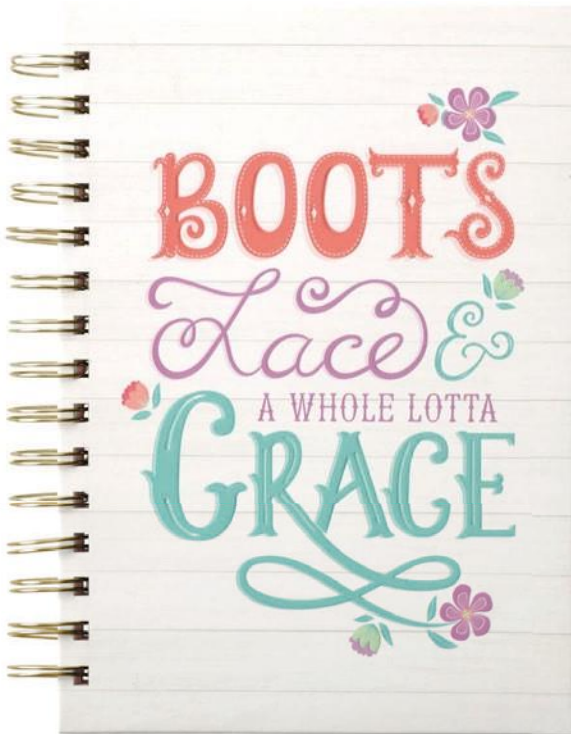 BOOTS
Lace &
A WHOLE LOTTA
GRACE